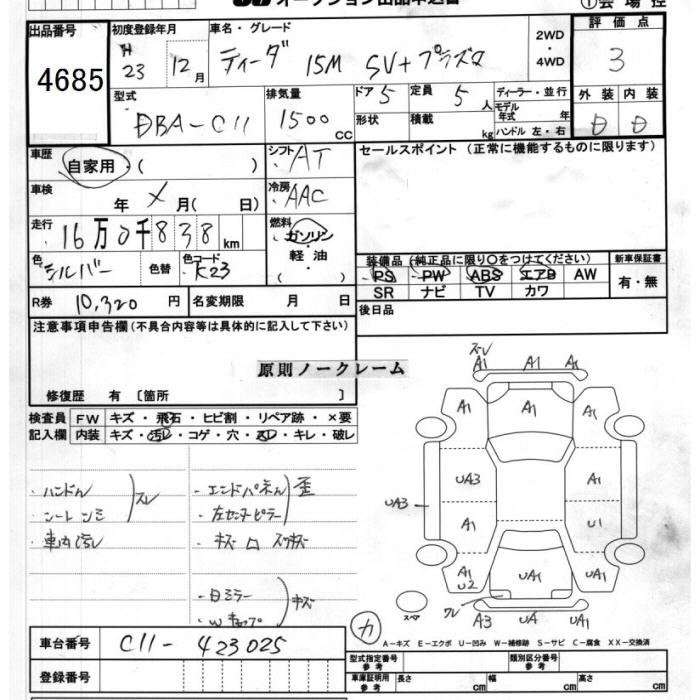 オークション出品申込書
①会場控
出品番号 初度登録年月 車名・グレード 2WD・4WD 評価点
4685 H 23 12月 ティーダ 15M SV+プラズマ 3
型式 排気量 ドア 5 定員 5人 ディーラー・並行 外装 内装
DBA-C11 1500 CC 形状 積載 kg モデル年式 年 ハンドル 左・右 D D
車歴 自家用・( ) シフト AT セールスポイント (正常に機能するものに限ります)
車検 年 月( 日) 冷房 AAC
走行 16万0千838km 燃料 ガソリン 軽・油 ( )
色 シルバー 色替 色コード K23
装備品 (純正品に限り○をつけてください) 新車保証書
PS PW ABS エアB AW 有・無
SR ナビ TV カワ
R券 10,320円 名変期限 月 日 後日品
注意事項申告欄(不具合内容等は具体的に記入して下さい)
原則ノークレーム
修復歴 有 [箇所 ]
検査員 FW キズ・飛石・ヒビ割・リペア跡・×要
記入欄 内装 キズ・汚レ・コゲ・穴・スレ・キレ・破レ
・ハンドル
・シートシミ スレ
・車内汚レ
・エンドパネル 歪
・左センターピラー
・キズ
・Dミラー キズ
スレ
A1 A1 A1
A1 A1 A1
UA3 A1
UA3 A1 U1
A1 U2 UA1 UA1
ワレ A3 UA UA1
スペア
カ
A-キズ E-エクボ U-凹み W-補修跡 S-サビ C-腐食 XX-交換済
車台番号 C11-423025
型式指定番号 参考 類別区分番号 参考
登録番号 車庫証明用 参考 長さ cm 幅 cm 高さ cm